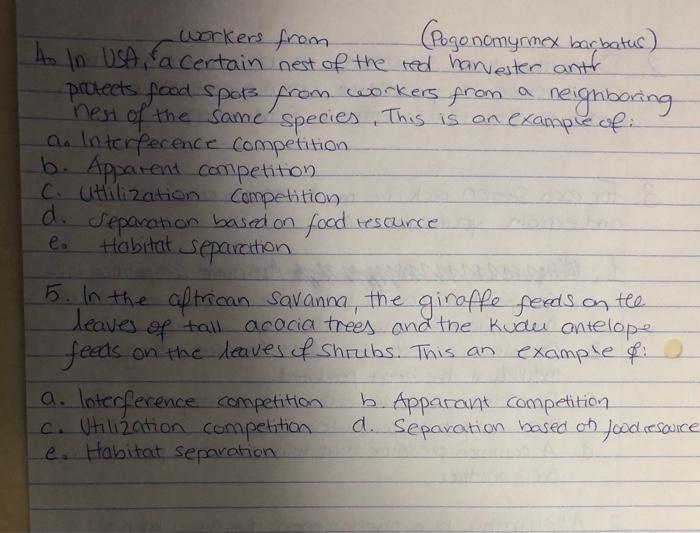 workers from (Pogonomyrmex barbatus)
4. In USA, a certain nest of the red harvester ant
protects food spots from workers from a neighboring
nest of the same species. This is an example of:
a. Interference competition
b. Apparent competition
c. Uthilization competition
d. Separation based on food resource
e. Habitat separation
5. In the aftrican savanna, the giraffe feeds on tee
leaves of tall acacia trees and the Kudu antelope
feeds on the leaves of shrubs. This an example of:
a. Interference competition b. Apparant competition
c. Uhilization competition d. Separation based on food resource
e. Habitat separation